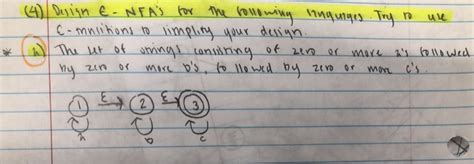 (4) Design ε-NFA's for the following languages. Try to use
ε-transitions to simplify your design.
* a) The set of strings consisting of zero or more a's followed
by zero or more b's, followed by zero or more c's.
1 ε 2 ε 3
a b c